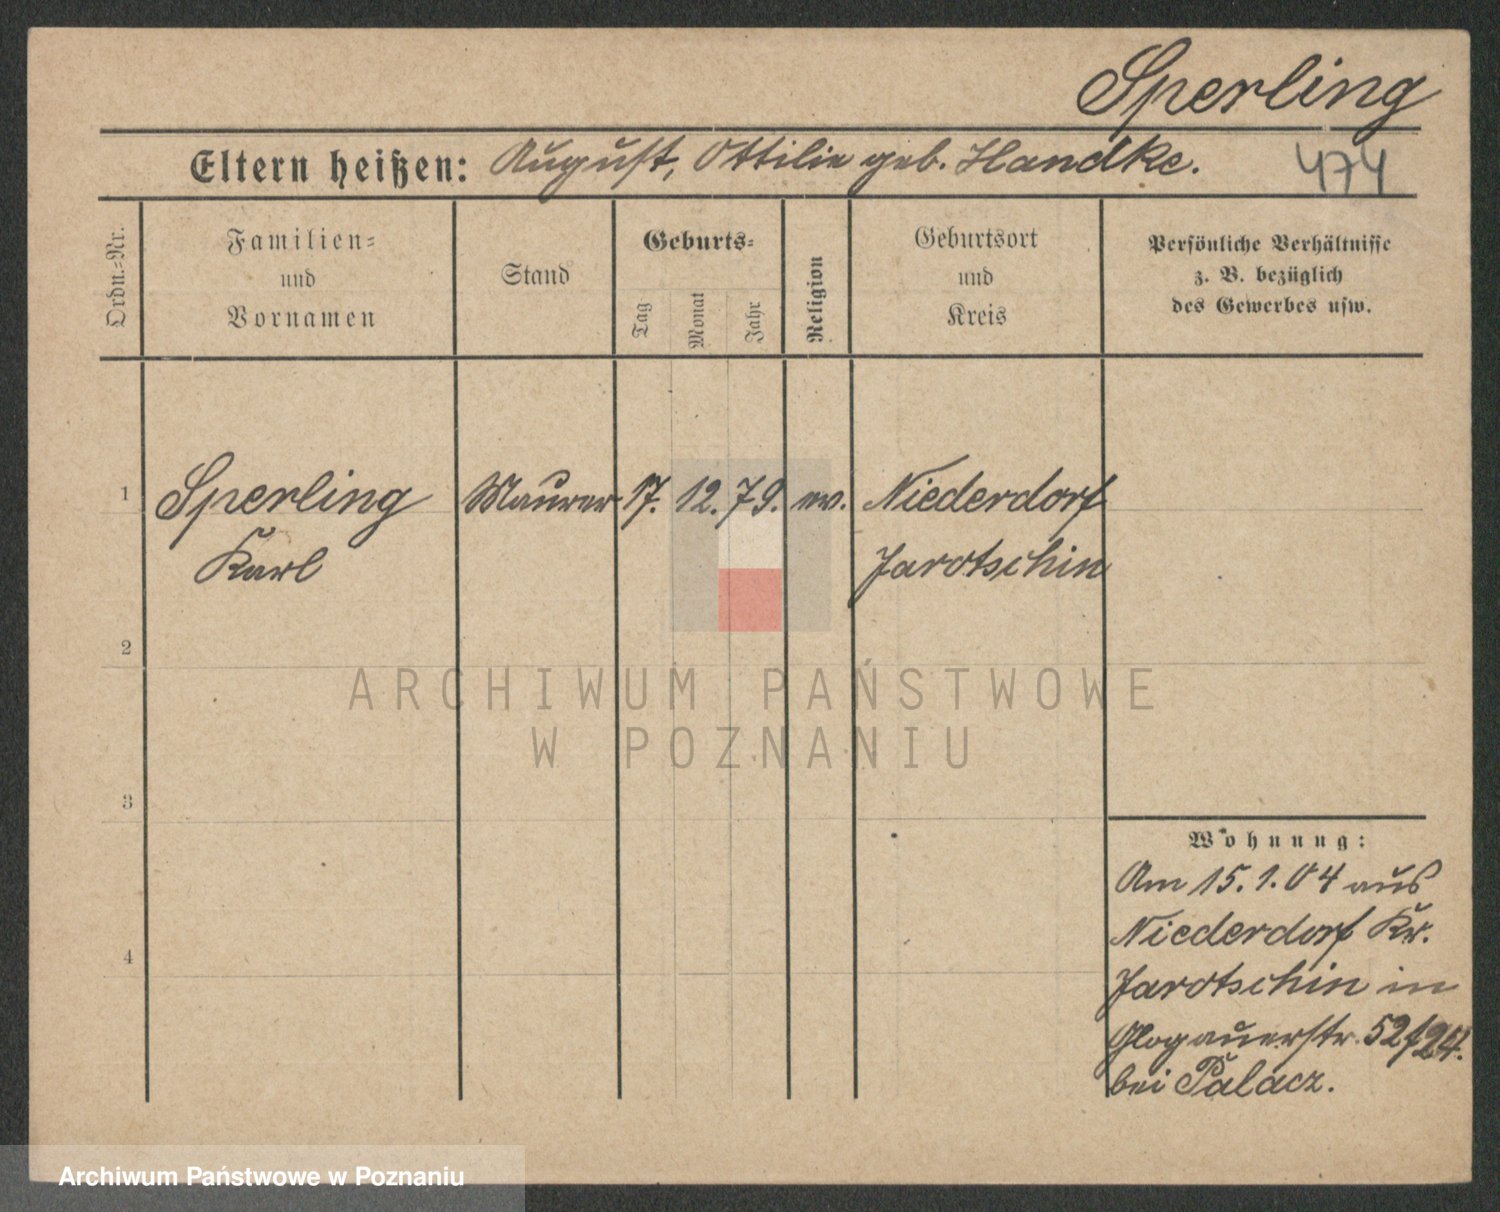 Sperling
Eltern heißen: August, Ottilie geb. Handke.
474
Ordn.=Nr.
Familien=
und
Vornamen
Stand
Geburts=
Tag
Monat
Jahr
Religion
Geburtsort
und
Kreis
Persönliche Verhältnisse
z. B. bezüglich
des Gewerbes usw.
1 Sperling Maurer 17. 12. 79. ev. Niederdorf
Karl Jarotschin
2
ARCHIWUM PAŃSTWOWE
W POZNANIU
3
Wohnung:
Am 15.1.04 aus
Niederdorf Kr.
4
Jarotschin in
Glogauerstr. 52/24.
bei Palacz.
Archiwum Państwowe w Poznaniu